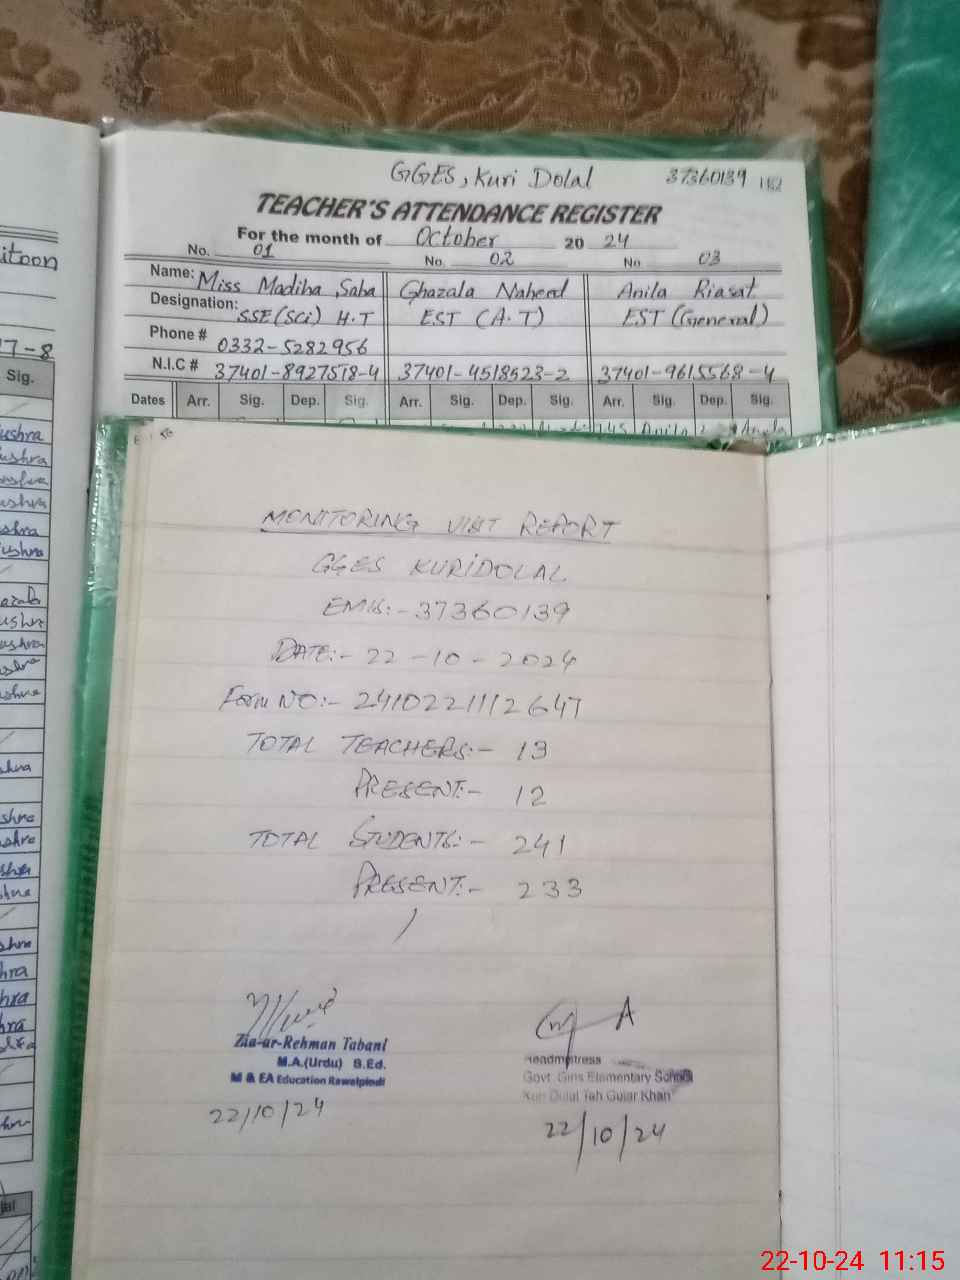 GGES, Kuri Dolal 37360139
TEACHER'S ATTENDANCE REGISTER
For the month of October 20 24
No. 01 No. 02 No 03
Name: Miss Madiha Saba Ghazala Naheed Anila Riasat
Designation: SSE(Sci) H.T EST (A.T) EST (General)
Phone # 0332-5282956
N.I.C # 37401-8927518-4 37401-4518523-2 37401-9615568-4
Dates Arr. Sig. Dep. Sig. Arr. Sig. Dep. Sig. Arr. Sig. Dep. Sig.
itoon
7-8
Sig.
MONITORING VISIT REPORT
GGES KURIDOLAL
EMIS:- 37360139
DATE:- 22-10-2024
Form NO:- 2410221112647
TOTAL TEACHERS:- 13
PRESENT:- 12
TOTAL STUDENTS:- 241
PRESENT:- 233
Zia-ur-Rehman Tabani
M.A.(Urdu) B.Ed.
M & EA Education Rawalpindi
22/10/24
Headmistress
Govt. Girls Elementary School
Kuri Dulal Teh Gujar Khan
22/10/24
22-10-24 11:15